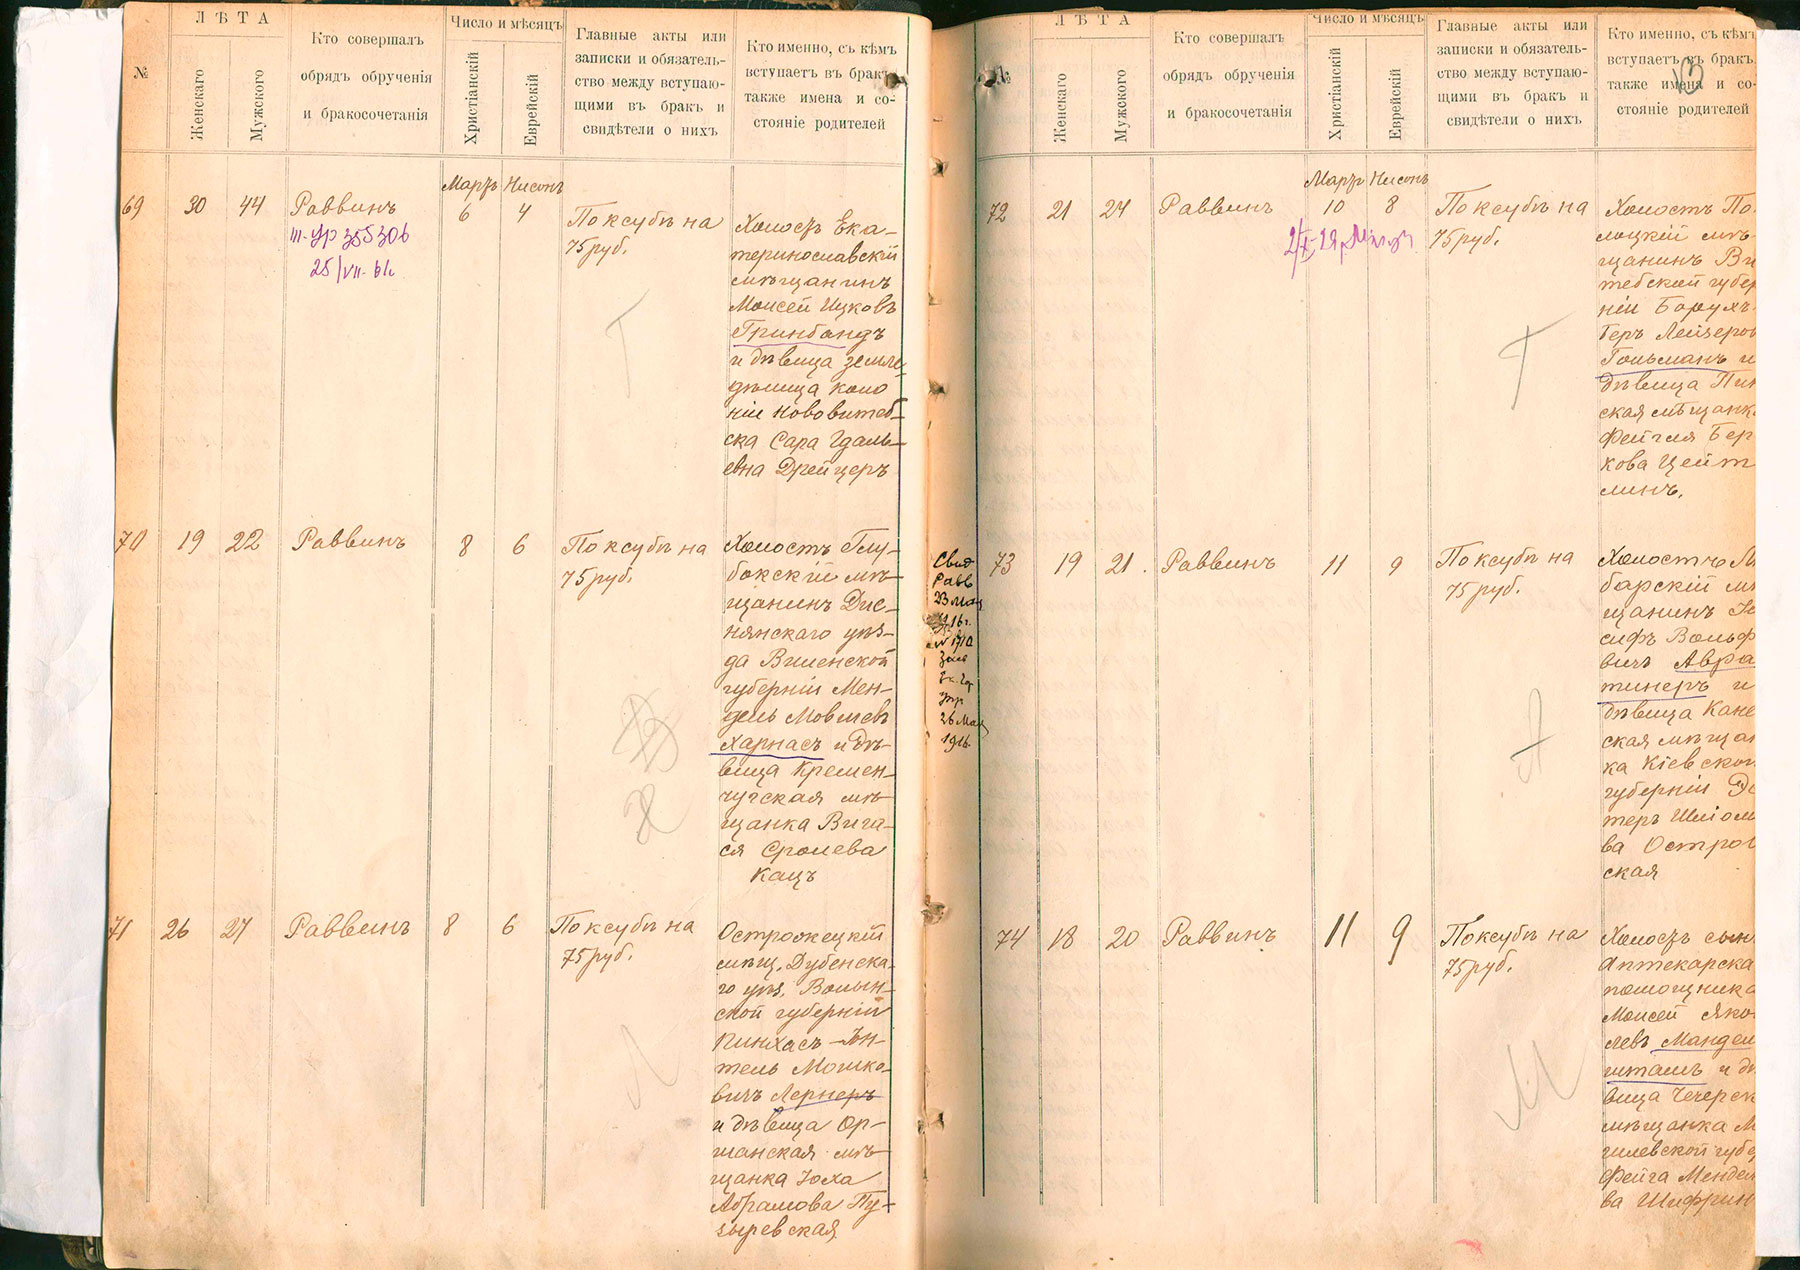 №
ЛѢТА
Женскаго
Мужского
Кто совершалъ
обрядъ обрученія
и бракосочетанія
Число и мѣсяцъ
Христіанскій
Еврейскій
Главные акты или
записки и обязатель-
ство между вступаю-
щими въ бракъ и
свидѣтели о нихъ
Кто именно, съ кѣмъ
вступаетъ въ бракъ,
также имена и со-
стояніе родителей
Мартъ Нисонъ
69 30 44 Раввинъ 6 4
25/VII-61г.
По ксубѣ на
75 руб.
Холостъ Ека-
теринославскій
мѣщанинъ
Моисей Ицковъ
Гринбандъ
и дѣвица земле-
дѣлица коло
ніи Нововитеб-
ска Сара Гдаль-
евна Дрейцеръ
Г
70 19 22 Раввинъ 8 6
По ксубѣ на
75 руб.
Холостъ Глу-
бокскій мѣ-
щанинъ Дис-
нянскаго уѣз-
да Виленской
губерніи Мен-
дель Мовшевъ
Харнасъ и дѣ-
вица Кремен-
чугская мѣ-
щанка Вига-
ся Сролева
Кацъ
Х
71 26 27 Раввинъ 8 6
По ксубѣ на
75 руб.
Острожецкій
мѣщ. Дубенска-
го уѣз. Волын-
ской губерніи
Пинхасъ-
тель Мошко-
вичъ Лернеръ
и дѣвица Ор-
шанская мѣ-
щанка Хоха
Абрамова Пу-
зыревская
Л
№
ЛѢТА
Женскаго
Мужского
Кто совершалъ
обрядъ обрученія
и бракосочетанія
Число и мѣсяцъ
Христіанскій
Еврейскій
Главные акты или
записки и обязатель-
ство между вступаю-
щими въ бракъ и
свидѣтели о нихъ
Кто именно, съ кѣмъ
вступаетъ въ бракъ
также имена и со-
стояніе родителей
13
Мартъ Нисонъ
72 21 24 Раввинъ 10 8
По ксубѣ на
75 руб.
Холостъ По-
лоцкій мѣ-
щанинъ Ви
тебской губер
ніи Борухъ-
Беръ Лейзеров
Гольманъ и
дѣвица Пин
ская мѣщанк
Фейгля Бер
кова Цейт
линъ.
Г
Свид
Равв
23 Мая
1916 г.
26 Мая
1916
73 19 21. Раввинъ 11 9
По ксубѣ на
75 руб.
Холостъ
барскій мѣ
щанинъ Іо
сифъ Вольф
вичъ Авра
тинеръ и
дѣвица Кане
ская мѣщан
ка Кіевской
губерніи Эс
теръ Шліом
ва Остров
ская
А
74 18 20 Раввинъ 11 9
По ксубѣ на
75 руб.
Холостъ сын
Аптекарска
помощника
Моисей Яко
левъ Мандел
штамъ и дѣ
вица Чечерск
мѣщанка М
гилевской губе
Фейга Мендел
ва Шифрин
М